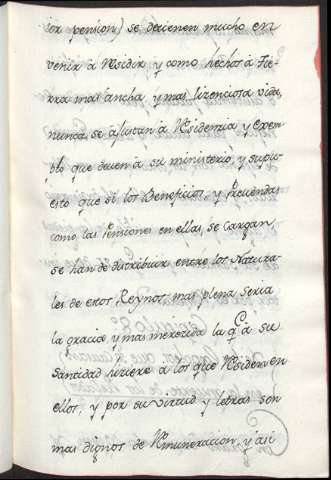 ier pension) se detienen mucho en
venir à Residir, y como hechos à Tie-
rra mas ancha y mas lizenciosa vida,
nunca se ajustan à Residenzia y exem-
plo que deven à su ministerio, y supu-
esto que si los Beneficios, y Prevendas
como las Pensiones en ellas, se cargan
se han de distribuir entre los Natura-
les de estos Reynos; mas plena seria
la gracia, y mas merecida la q.e à su
Santidad hiziere à los que Residen en
ellos, y por su virtud y letras son
mas dignos de Remuneracion, y assi